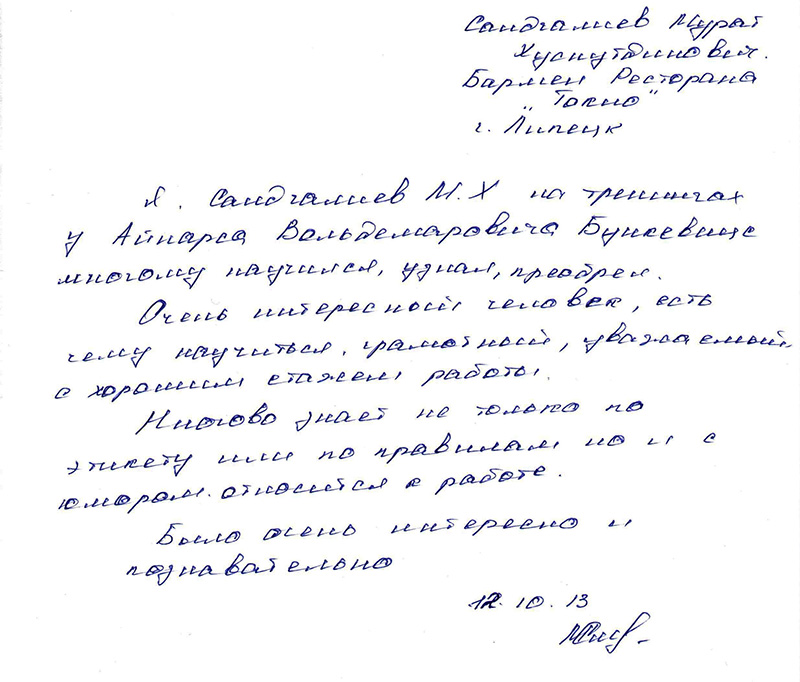 Саидгалиев Мурат
Хуснутдинович.
Бармен Ресторана
"Токио"
г. Липецк
Я. Саидгалиев М.Х на тренингах
у Айнарса Вольдемаровича Бункевице
многому научился, узнал, преобрел.
Очень интересный человек, есть
чему научиться, грамотный, уважаемый,
с хорошим стажем работы.
Многово знает не только по
этикету или по правилам но и с
юмором относится к работе.
Было очень интересно и
познавательно
12.10.13